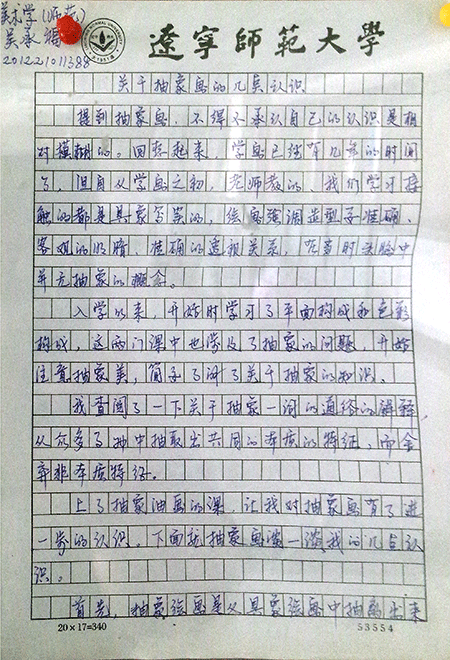 美术学(师范)
吴承福
201221011388
辽宁师范大学
关于抽象画的几点认识
提到抽象画,不得不承认自己的认识是相
对模糊的。回想起来,学画已经有几年的时间
了,但自从学画之初,老师教的、我们学习接
触的都是具象写实的,绘画强调造型要准确、
客观的明暗、准确的透视关系,在当时头脑中
并无抽象的概念。
入学以来,开始时学习了平面构成和色彩
构成,这两门课中也涉及了抽象的问题,开始
注意抽象美,简单了解了关于抽象的知识。
我查阅了一下关于抽象一词的通俗的解释
从众多事物中抽取出共同的本质的特征,而舍
弃非本质特征。
上了抽象油画的课,让我对抽象画有了进
一步的认识。下面就抽象画谈一谈我的几点认
识。
首先,抽象绘画是从具象绘画中抽离出来
20×17=340
53554